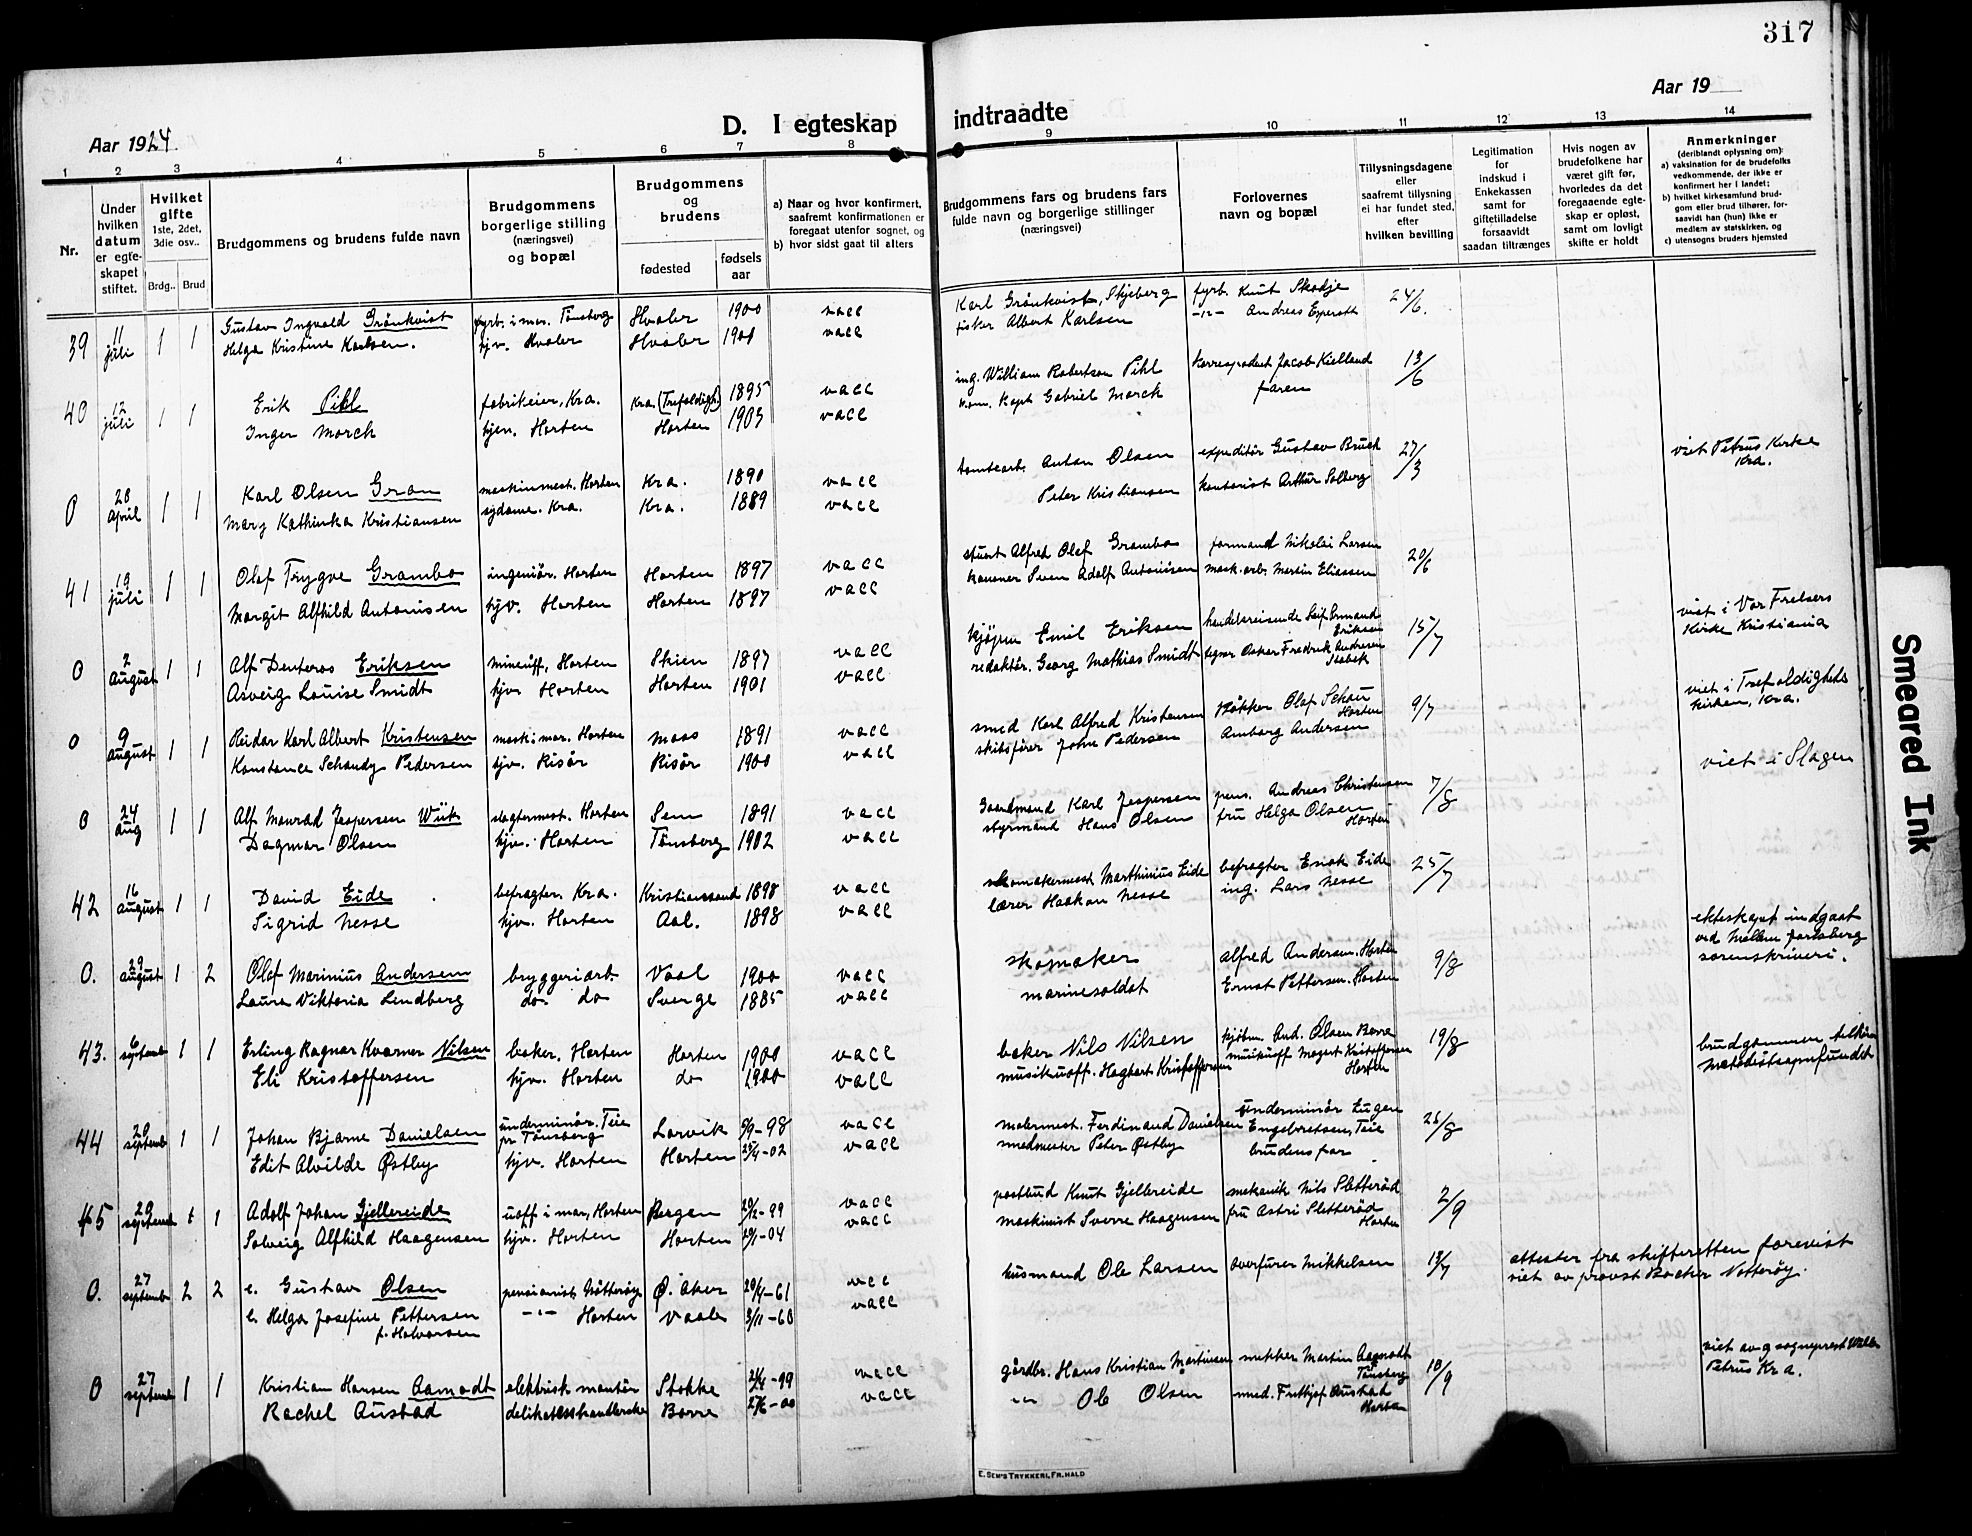 317
Aar 1924.
D. I egteskap indtraadte
Aar 19
1 2 3 4 5 6 7 8 9 10 11 12 13 14
Nr.
Under hvilken datum er egteskapet stiftet.
Hvilket gifte 1ste, 2det, 3die osv..
Brdg.. Brud
Brudgommens og brudens fulde navn
Brudgommens borgerlige stilling (næringsvei) og bopæl
Brudgommens og brudens
fødested
fødsels aar
a) Naar og hvor konfirmert, saafremt konfirmationen er foregaat utenfor sognet, og
b) hvor sidst gaat til alters
Brudgommens fars og brudens fars fulde navn og borgerlige stillinger (næringsvei)
Forlovernes navn og bopæl
Tillysningsdagene eller saafremt tillysning ei har fundet sted, efter hvilken bevilling
Legitimation for indskud i Enkekassen samt for giftetilladelse forsaavidt saadan tiltrænges
Hvis nogen av brudefolkene har været gift før, hvorledes da det foregaaende egteskap er opløst, samt om lovligt skifte er holdt
Anmerkninger (deriblandt oplysning om):
a) vaksination for de brudefolks vedkommende, der ikke er konfirmert her i landet;
b) hvilket kirkesamfund brudgom eller brud tilhører, forsaavidt han (hun) ikke er medlem av statskirken, og
c) utensogns bruders hjemsted
39 11 juli 1 1 Gustav Ingvald Grönkvist fyrb. i mar. Tönsberg Hvaler 1900 vacc Karl Grönkvist, Skjeberg fyrb. Knut Skodje 24/6.
Helga Kristine Karlsen. hjv. Hvaler Hvaler 1901 vacc fisker Albert Karlsen -"- Andreas
40 12 juli 1 1 Erik Pihl fabrikeier, Kra. Kra. (Trefoldigh.) 1895 vacc ing. William Robertson Pihl Jacob Kielland 13/6
Inger Morck hjem. Horten Horten 1905 vacc kom. kapt Gabriel Morck faren
0 28 april 1 1 Karl Olsen Gran maskinmest. Horten Kra. 1890 vacc tomtearb. Anton Olsen expeditör Gustav Bruck 27/3 viet Petrus Kirke Kra.
Mary Kathinka Kristiansen sydame. Kra. Kra. 1889 vacc Peter Kristiansen kontorist Arthur Solberg
41 19 juli 1 1 Olaf Trygve Grambo ingeniör. Horten Horten 1897 vacc stuert Alfred Olaf Grambo formand Nikolai Larsen 20/6
Margit Alfhild Antonisen hjv. Horten Horten 1897 vacc kanoner Sven Adolf Antonisen mask. arb. Martin Eliassen
0 2 august 1 1 Alf Denteros Eriksen mineuff. Horten Skien 1897 vacc kjøpm Emil Eriksen handelsreisende Leif Ermand Eriksen 15/7 viet i Vor Frelsers Kirke Kristiania
Asveig Louise Smidt hjv Horten Horten 1901 vacc redaktör. Georg Mathias Smidt Oskar Fredrik Andresen
0 9 august 1 1 Reidar Karl Albert Kristensen mask: mar. Horten Moss 1891 vacc smed Karl Alfred Kristensen Bökker Olaf Schau Horten 9/7 viet i Trefoldigheds kirken, Kra.
Konstance Schandy Pedersen hjv. Risör Risör 1900 vacc skibsfører John Pedersen Amborg Andersen
0 24 aug 1 1 Alf Monrad Jespersen Wiik slagtermest. Horten Sem 1891 vacc Gaardmand Karl Jespersen pens. Andreas Christensen 7/8 viet i Slagen
Dagmar Olsen hjv. Horten Tönsberg 1902 vacc styrmand Hans Olsen fru Helga Olsen Horten
42 16 august 1 1 David Eide befragter. Kra. Kristianssand 1898 vacc skomakermest Marthinius Eide befragter Enok Eide 25/7
Sigrid Nesse hjv. Horten Aal. 1898 vacc lærer Haakon Nesse ing. Lars Nesse
0. 29 august 1 2 Olaf Marinius Andersen bryggeriarb. Vaal 1900 vacc skomaker Alfred Andersen. Horten 9/8 ekteskapet indgaat ved Mellem Jarlsberg sorenskriveri.
Laura Viktoria Lindberg do do Sverge 1885 vacc marinesoldat Ernst Pettersen. Horten
43. 6 septemb 1 1 Erling Ragnar Kvarner Nilsen baker. Horten Horten 1900 vacc baker Nils Nilsen kjöbm. And. Olsen Borre 19/8 brudgommen tilhörer metodistsamfundet
Eli Kristoffersen hjv. Horten do 1900 vacc musikuoff. Hagbart Kristoffersen musikuoff Kristoffersen Horten
44 20 septemb 1 1 Johan Bjarne Danielsen underminör. Teie pr Tönsberg Larvik 5/9-98 vacc malermest. Ferdinand Danielsen underminör Eugen Engebretsen, Teie 26/8
Edit Alvilde Østby hjv. Horten Horten 25/4-02 vacc smedmester Peter Østby brudens far
45 20 septemb 1 1 Adolf Johan Gjellereide uoff i mar, Horten Bergen 29/12-99 vacc postbud Knut Gjellereide mekanik Nils Sletteröd 2/9
Solveig Alfhild Haagensen hjv. Horten Horten 29/1-04 vacc maskinist Sverre Haagensen fru Astri Sletteröd Horten
0. 27 septemb 2 2 e. Gustav Olsen pensionist Nötteröy Ø. Aker 29/4-61 vacc husmand Ole Larsen overfurer Mikkelsen 13/7 attester fra skifteretten forevist
e. Helga Josefine Pettersen f. Halvorsen -"- Horten Vaale 3/11-60 vacc viet av provst Backer Nötteröy.
0 27 septemb 1 1 Kristian Hansen Aamodt elektrisk montör Stokke 24/4-99 vacc gårdbr. Hans Kristian Martinsen snekker Martin Aamodt Tönsberg 10/9 viet av sogneprest Petrus Kra.
Rachel Austad delikatesshandlerske Borre 27/6-00 vacc -"- Ole Olsen smed. Fridtjof Austad Horten
E. SEM'S TRYKKERI, FR.HALD
Smeared Ink